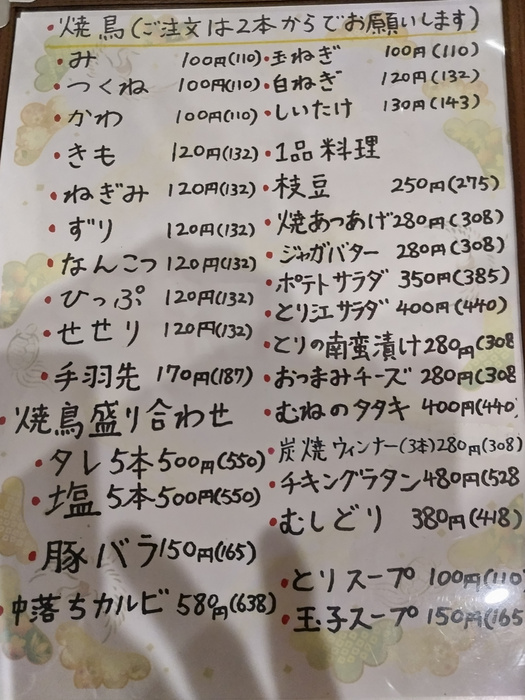 ・焼鳥(ご注文は2本からでお願いします)
・み 100円(110)
・つくね 100円(110)
・かわ 100円(110)
・きも 120円(132)
・ねぎみ 120円(132)
・ずり 120円(132)
・なんこつ 120円(132)
・ひっぷ 120円(132)
・せせり 120円(132)
・手羽先 170円(187)
・焼鳥盛り合わせ
・タレ5本500円(550)
・塩5本500円(550)
・豚バラ150円(165)
・中落ちカルビ580円(638)
・玉ねぎ 100円(110)
・白ねぎ 120円(132)
・しいたけ 130円(143)
・1品料理
・枝豆 250円(275)
・焼あつあげ280円(308)
・ジャガバター 280円(308)
・ポテトサラダ 350円(385)
・とり江サラダ 400円(440)
・とりの南蛮漬け280円(308
・おつまみチーズ 280円(308
・むねのタタキ 400円(440)
・炭焼ウィンナー(3本)280円(308)
・チキングラタン480円(528
・むしどり 380円(418)
・とりスープ 100円(110
・玉子スープ 150円(165